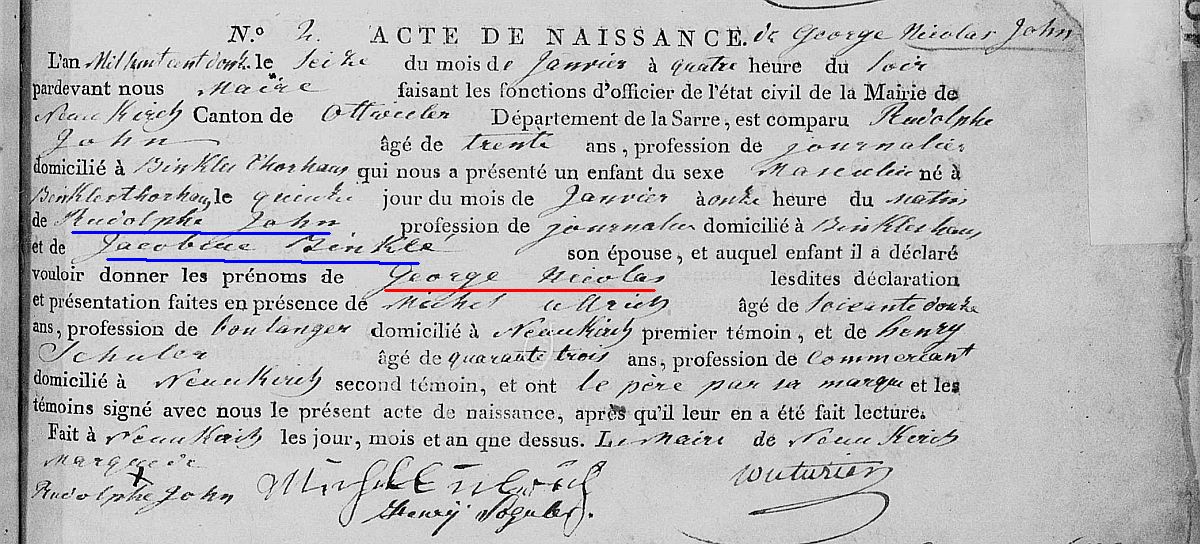 N.º 2. ACTE DE NAISSANCE. de George Nicolas John
L'an Mil huit cent douze le seize du mois de Janvier à quatre heure du soir
pardevant nous Maire faisant les fonctions d'officier de l'état civil de la Mairie de
NeunKirch Canton de Ottweiler Département de la Sarre, est comparu Rudolphe
John âgé de trente ans, profession de journalier
domicilié à qui nous a présenté un enfant du sexe Masculin né à
le quinze jour du mois de Janvier à onze heure du matin
de Rudolphe John profession de journalier domicilié à
et de Jacobine Binkle son épouse, et auquel enfant il a déclaré
vouloir donner les prénoms de George Nicolas lesdites déclaration
et présentation faites en présence de Michel Ullrich âgé de soixante douze
ans, profession de boulanger domicilié à NeunKirch premier témoin, et de henry
Schuler âgé de quarante trois ans, profession de Commercant
domicilié à NeunKirch second témoin, et ont le père par sa marque et les
témoins signé avec nous le présent acte de naissance, après qu'il leur en a été fait lecture.
Fait à NeunKirch les jour, mois et an qne dessus. Le Maire de NeunKirch
Marque de
Rudolphe John